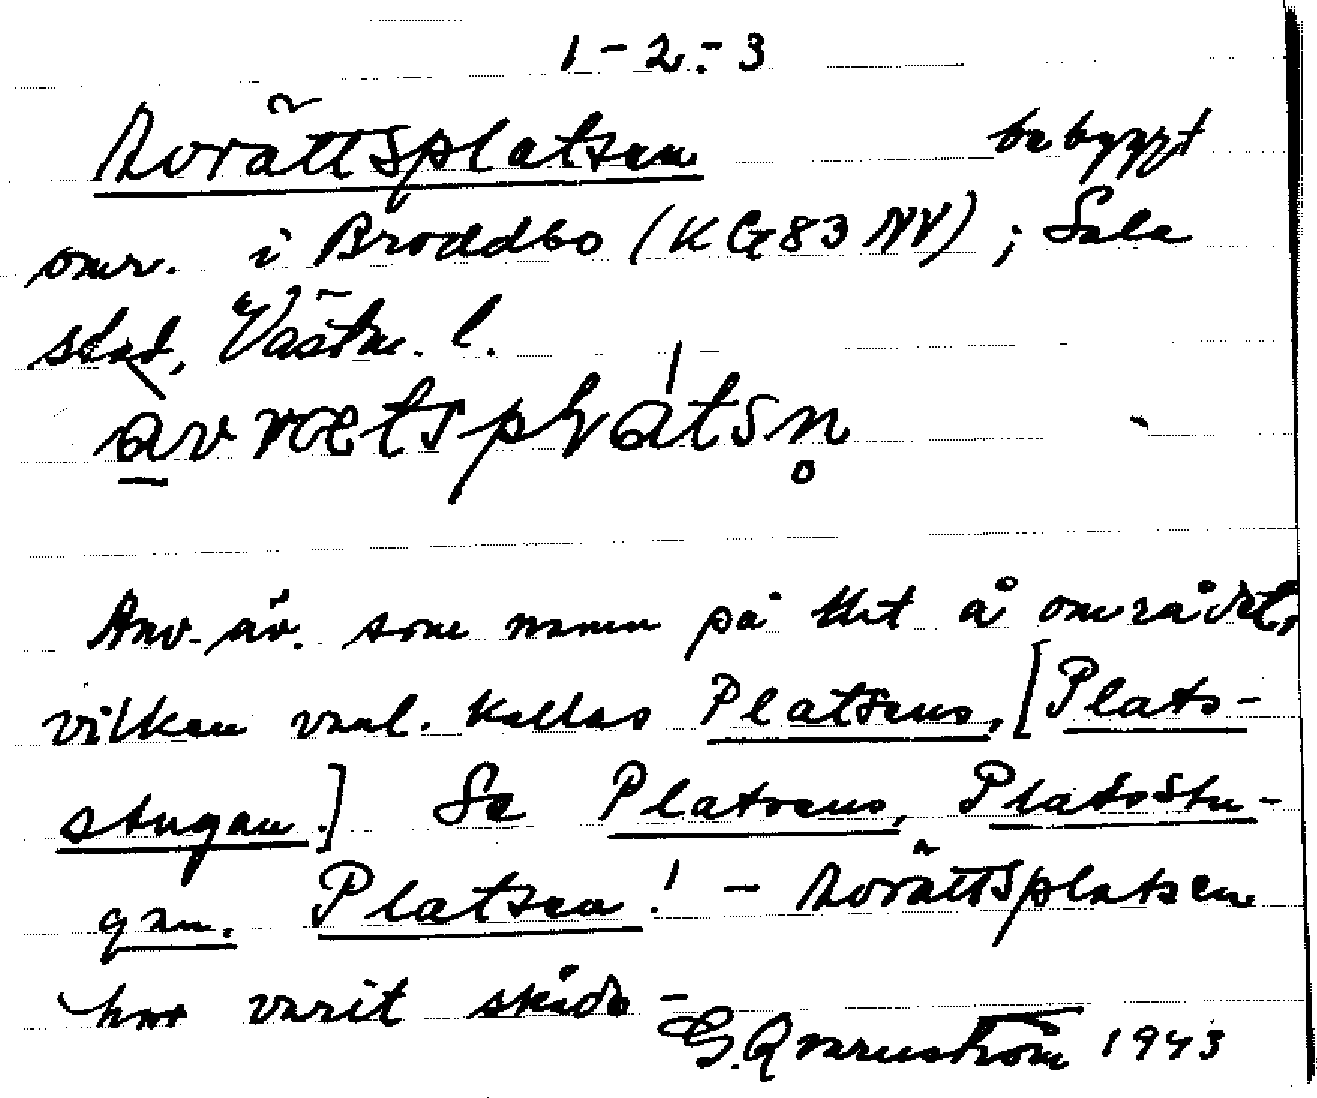 1-2.-3
Avrättsplatsen bebyggt
omr. i Broddbo (KG83NV); Sala
stad, Västm. l.
àvrætsplátsn̥
Anv. äv. som namn på ett å området,
vilken vanl. kallas Platsens, [Plats-
stugan.] Se Platsens, Platsstu-
gan. Platsen! - Avrättsplatsen
har varit skåde-
G. Qvarnström 1943